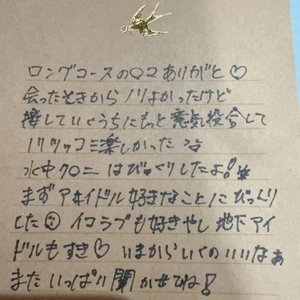 ロングコースの〇コありがと♡
会ったときからノリよかったけど
接していくうちにもっと意気投合して
楽しかったね
水中クロニはびっくりしたよ!
まずアイドル好きなことにびっくり
した☺ イコラブも好きやし地下アイ
ドルもすき♡ いまからいくのいいなぁ
またいっぱい聞かせてね!